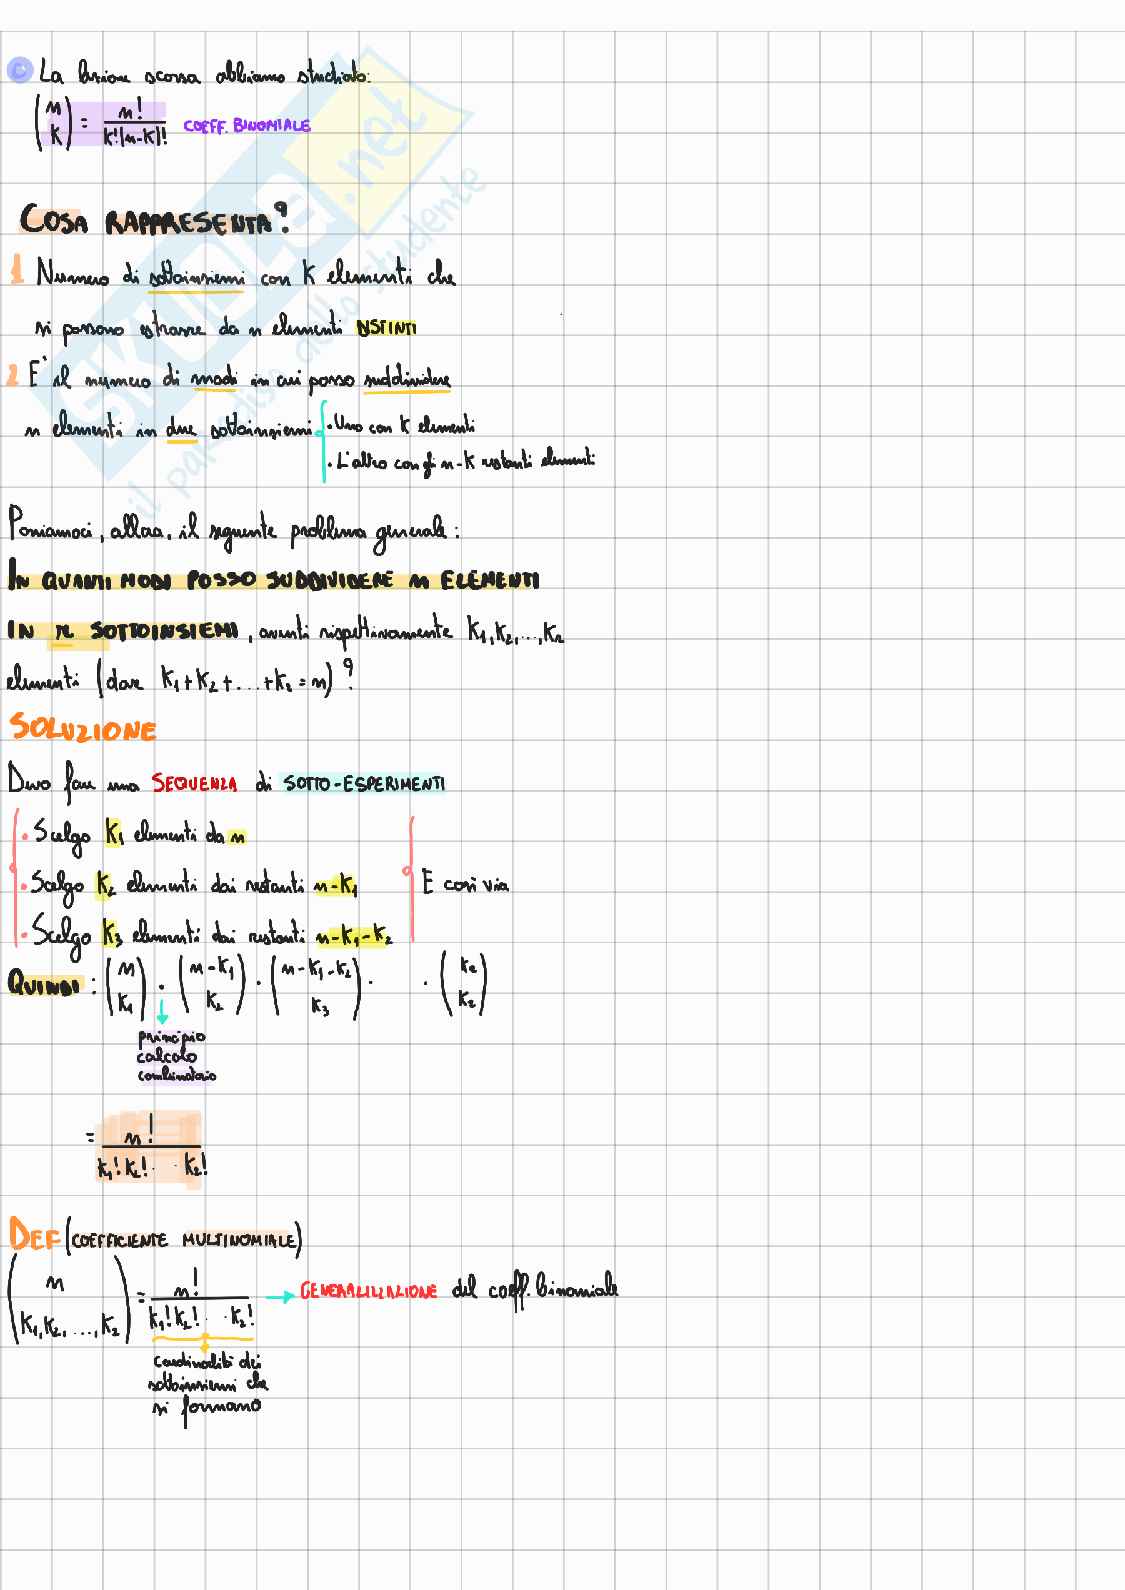 La lezione scorsa abbiamo studiato:
(n k) = n! / k!(n-k)! COEFF. BINOMIALE
COSA RAPPRESENTA?
1 Numero di sottoinsiemi con K elementi che
si possono estrarre da n elementi DISTINTI
2 E' il numero di modi in cui posso suddividere
n elementi in due sottoinsiemi
• Uno con K elementi
• L'altro con gli n-K restanti elementi
Poniamoci, allora, il seguente problema generale:
IN QUANTI MODI POSSO SUDDIVIDERE n ELEMENTI
IN r SOTTOINSIEMI, aventi rispettivamente K₁,K₂,...,Kr
elementi (dove K₁+K₂+...+Kr=n)?
SOLUZIONE
Devo fare una SEQUENZA di SOTTO-ESPERIMENTI
• Scelgo K₁ elementi da n
• Scelgo K₂ elementi dai restanti n-K₁
E così via
• Scelgo K₃ elementi dai restanti n-K₁-K₂
QUINDI: (n K₁) · (n-K₁ K₂) · (n-K₁-K₂ K₃) · · (Kr Kr)
principio
calcolo
combinatorio
= n! / K₁! K₂! · · Kr!
DEF (COEFFICIENTE MULTINOMIALE)
(n K₁,K₂,...,Kr) = n! / K₁! K₂! · · Kr! → GENERALIZZAZIONE del coeff. binomiale
cardinalità dei
sottoinsiemi che
si formano
SKUOLA.net
il paradiso dello studente